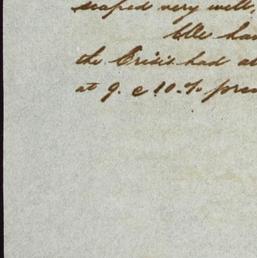 scaped very well,
We ha
the Crisis had a
at 9. @ 10. % pre